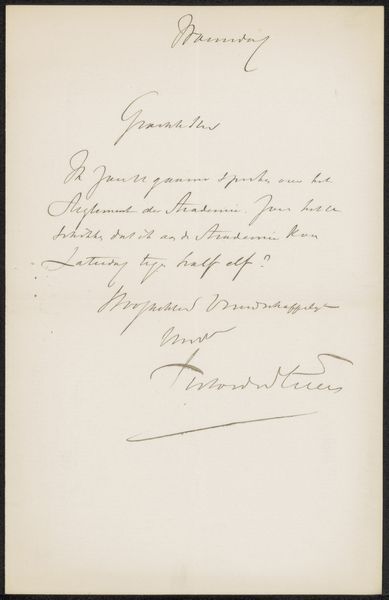 Woensdag
Geachte Heer
Ik zou U gaarne spreken over het
Reglement der Academie. Zou het U
schikken dat ik aan de Academie kom
Zaturdag tegen half elf?
Hoogachtend Vriendschappelijk
Victor de Stuers